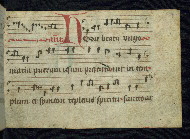 Hodie beata virgo
maria puerum iesum presentauit in tem
plum et simeon repletus spiritu sancto ac